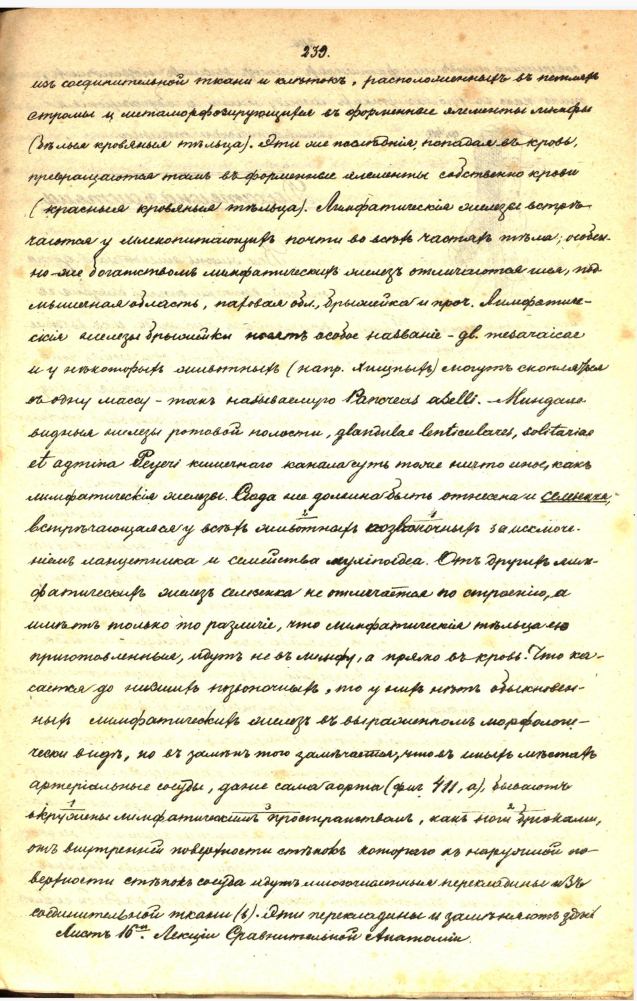 239.
изъ соединительной ткани и клѣтокъ, расположенныхъ въ петляхъ
стромы и метаморфозирующихся въ форменные элементы лимфы
(бѣлыя кровяныя тѣльца). Эти же послѣднія, попадая въ кровь,
превращаются тамъ въ форменные элементы собственно крови
(красныя кровяныя тѣльца). Лимфатическія железы встрѣ-
чаются у млекопитающихъ почти во всѣхъ частяхъ тѣла; особен-
но-же богатствомъ лимфатическихъ железъ отличаются шея, под-
мышечная область, паховая обл., брыжейка и проч. Лимфатиче-
скія железы брыжейки носятъ особое названіе - gl. mesaraicae
и у нѣкоторыхъ животныхъ (напр. хищныхъ) могутъ скопляться
въ одну массу - такъ называемую Pancreas aselli. - Миндале-
видныя железы ротовой полости, glandulae lenticulares, solitariae
et agmina Peyeri кишечнаго канала суть тоже ничто иное, какъ
лимфатическія железы. Сюда же должна быть отнесена и селезенка,
встрѣчающаяся у всѣхъ животныхъ позвоночныхъ за исключе-
2 1
ніемъ ланцетника и семейства myxinoidea. Отъ другихъ лим-
фатическихъ железъ селезенка не отличается по строенію, а
имѣетъ только то различіе, что лимфатическія тѣльца ею
приготовленныя, идутъ не въ лимфу, а прямо въ кровь. Что ка-
сается до низшихъ позвоночныхъ, то у нихъ нѣтъ обыкновен-
ныхъ лимфатическихъ железъ въ выраженномъ морфологи-
чески видѣ, но въ замѣнъ того замѣчается, что въ иныхъ мѣстахъ
артеріальные сосуды, даже сама аорта (фиг. 411, a), бываютъ
1 3 2
окружены лимфатическимъ пространствомъ, какъ ноги брюками,
отъ внутренней поверхности стѣнокъ котораго къ наружной по-
верхности стѣнокъ сосуда идутъ многочисленныя перекладины изъ
соединительной ткани (b). Эти перекладины и замѣняютъ здѣсь
Листъ 16й Лекціи Сравнительной Анатоміи.